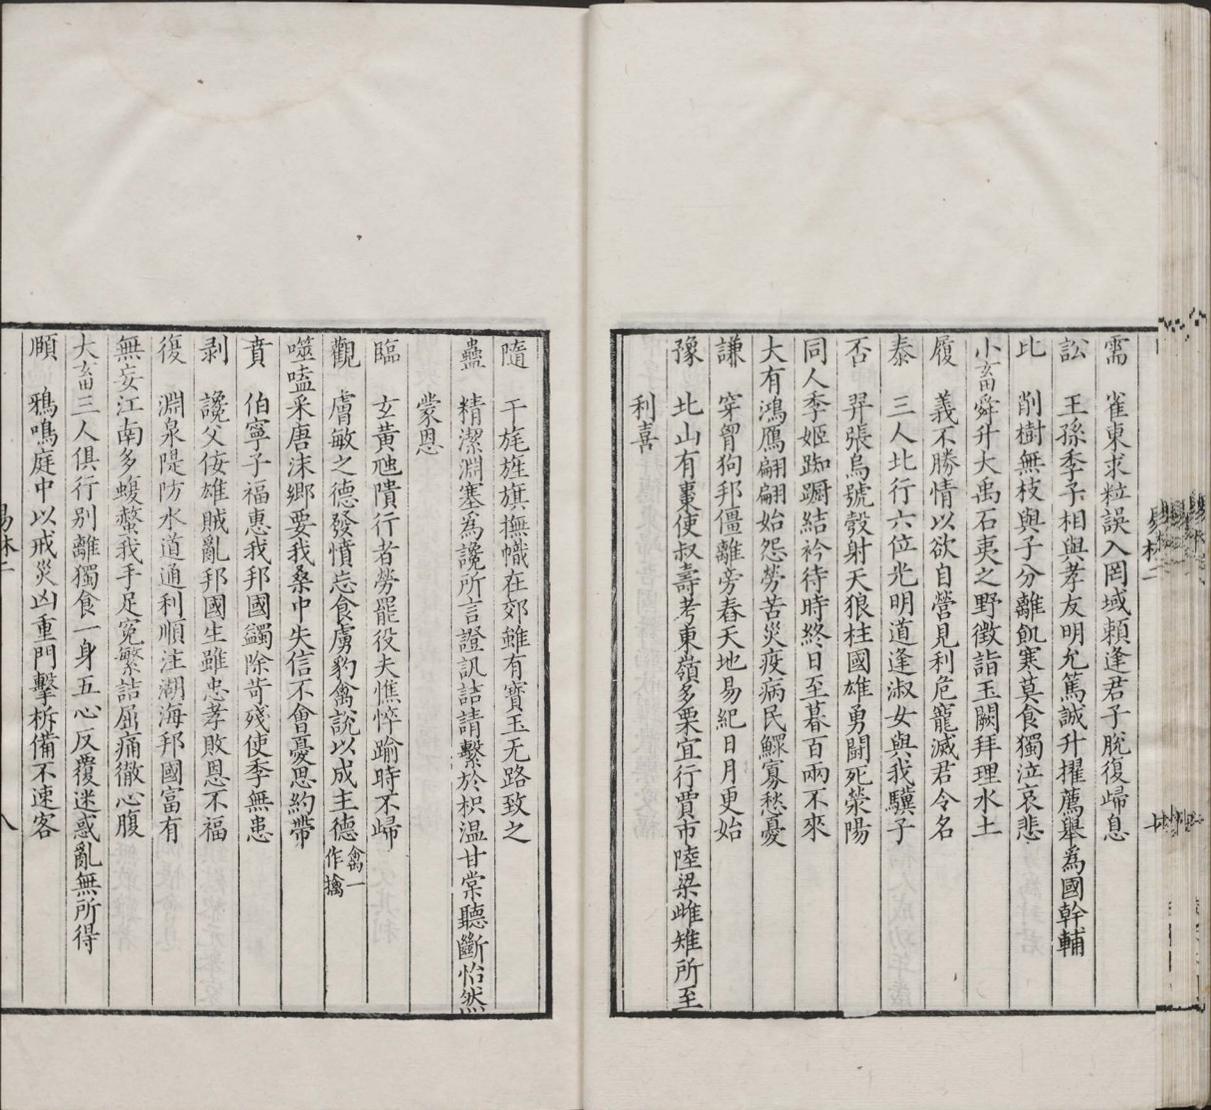 需　雀東求粒誤入罔域賴逢君子脫復歸息
訟　王孫季子相與孝友明允篤誠升擢薦舉為國幹輔
比　削樹無枝與子分離飢寒莫食獨泣哀悲
小畜舜升大禹石夷之野徵詣玉闕拜理水土
履　義不勝情以欲自營見利危寵滅君令名
泰　三人北行六位光明道逢淑女與我驥子
否　羿張烏號彀射天狼柱國雄勇鬬死滎陽
同人季姬踟躕結衿待時終日至暮百兩不來
大有鴻鴈翩翩始怨勞苦災疫病民鰥寡愁憂
謙　穿胷狗邦僵離旁舂天地易紀日月更始
豫　北山有棗使叔壽考東嶺多栗宜行賈市陸梁雌雉所至
利喜
隨　干旄旌旗撫幟在郊雖有寶玉无路致之
蠱　精潔淵塞為讒所言證訊詰請繫於枳温甘棠聽斷怡然
蒙恩
臨　玄黃虺隤行者勞罷役夫憔悴踰時不歸
觀　膚敏之德發憤忘食虜豹禽說以成主德禽一作擒
噬嗑采唐沬鄉要我桑中失信不會憂思約帶
賁　伯寧子福惠我邦國蠲除苛殘使季無患
剥　讒父佞雄賊亂邦國生雖忠孝敗恩不福
復　淵泉隄防水道通利順注湖海邦國富有
無妄江南多蝮螫我手足寃繁詰屈痛徹心腹
大畜三人俱行別離獨食一身五心反覆迷惑亂無所得
頤　鴉鳴庭中以戒災凶重門擊柝備不速客
八